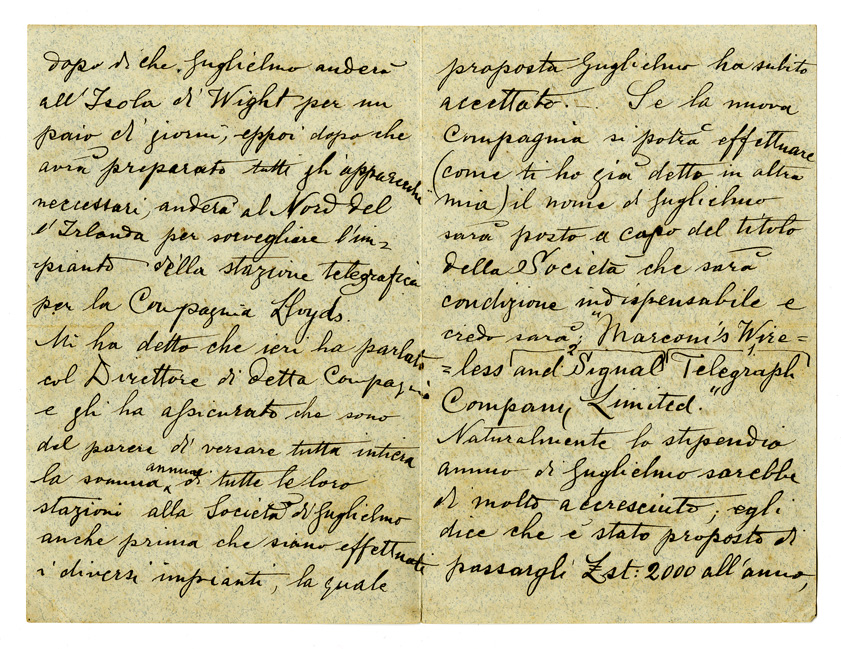 dopo di che Guglielmo anderà
all'Isola di Wight per un
paio di giorni, eppoi dopo che
avrà preparato tutti gli apparecchi
necessari, anderà al Nord del
l'Irlanda per sorvegliare l'im=
pianto della stazione telegrafica
per la Compagnia Lloyds.
Mi ha detto che ieri ha parlato
col Direttore di detta Compagnia
e gli ha assicurato che sono
del parere di versare tutta intiera
la somma annua di tutte le loro
stazioni alla Società di Guglielmo
anche prima che siano effettuati
i diversi impianti, la quale
proposta Guglielmo ha subito
accettato. — Se la nuova
Compagnia si potrà effettuare
(come ti ho già detto in altra
mia) il nome di Guglielmo
sarà posto a capo del titolo
della Società che sarà
condizione indispensabile e
credo sarà; "Marconi's Wire=
=less and Signal Telegraph
Company, Limited."
Naturalmente lo stipendio
annuo di Guglielmo sarebbe
di molto accresciuto; egli
dice che è stato proposto di
passargli Lst: 2000 all'anno,